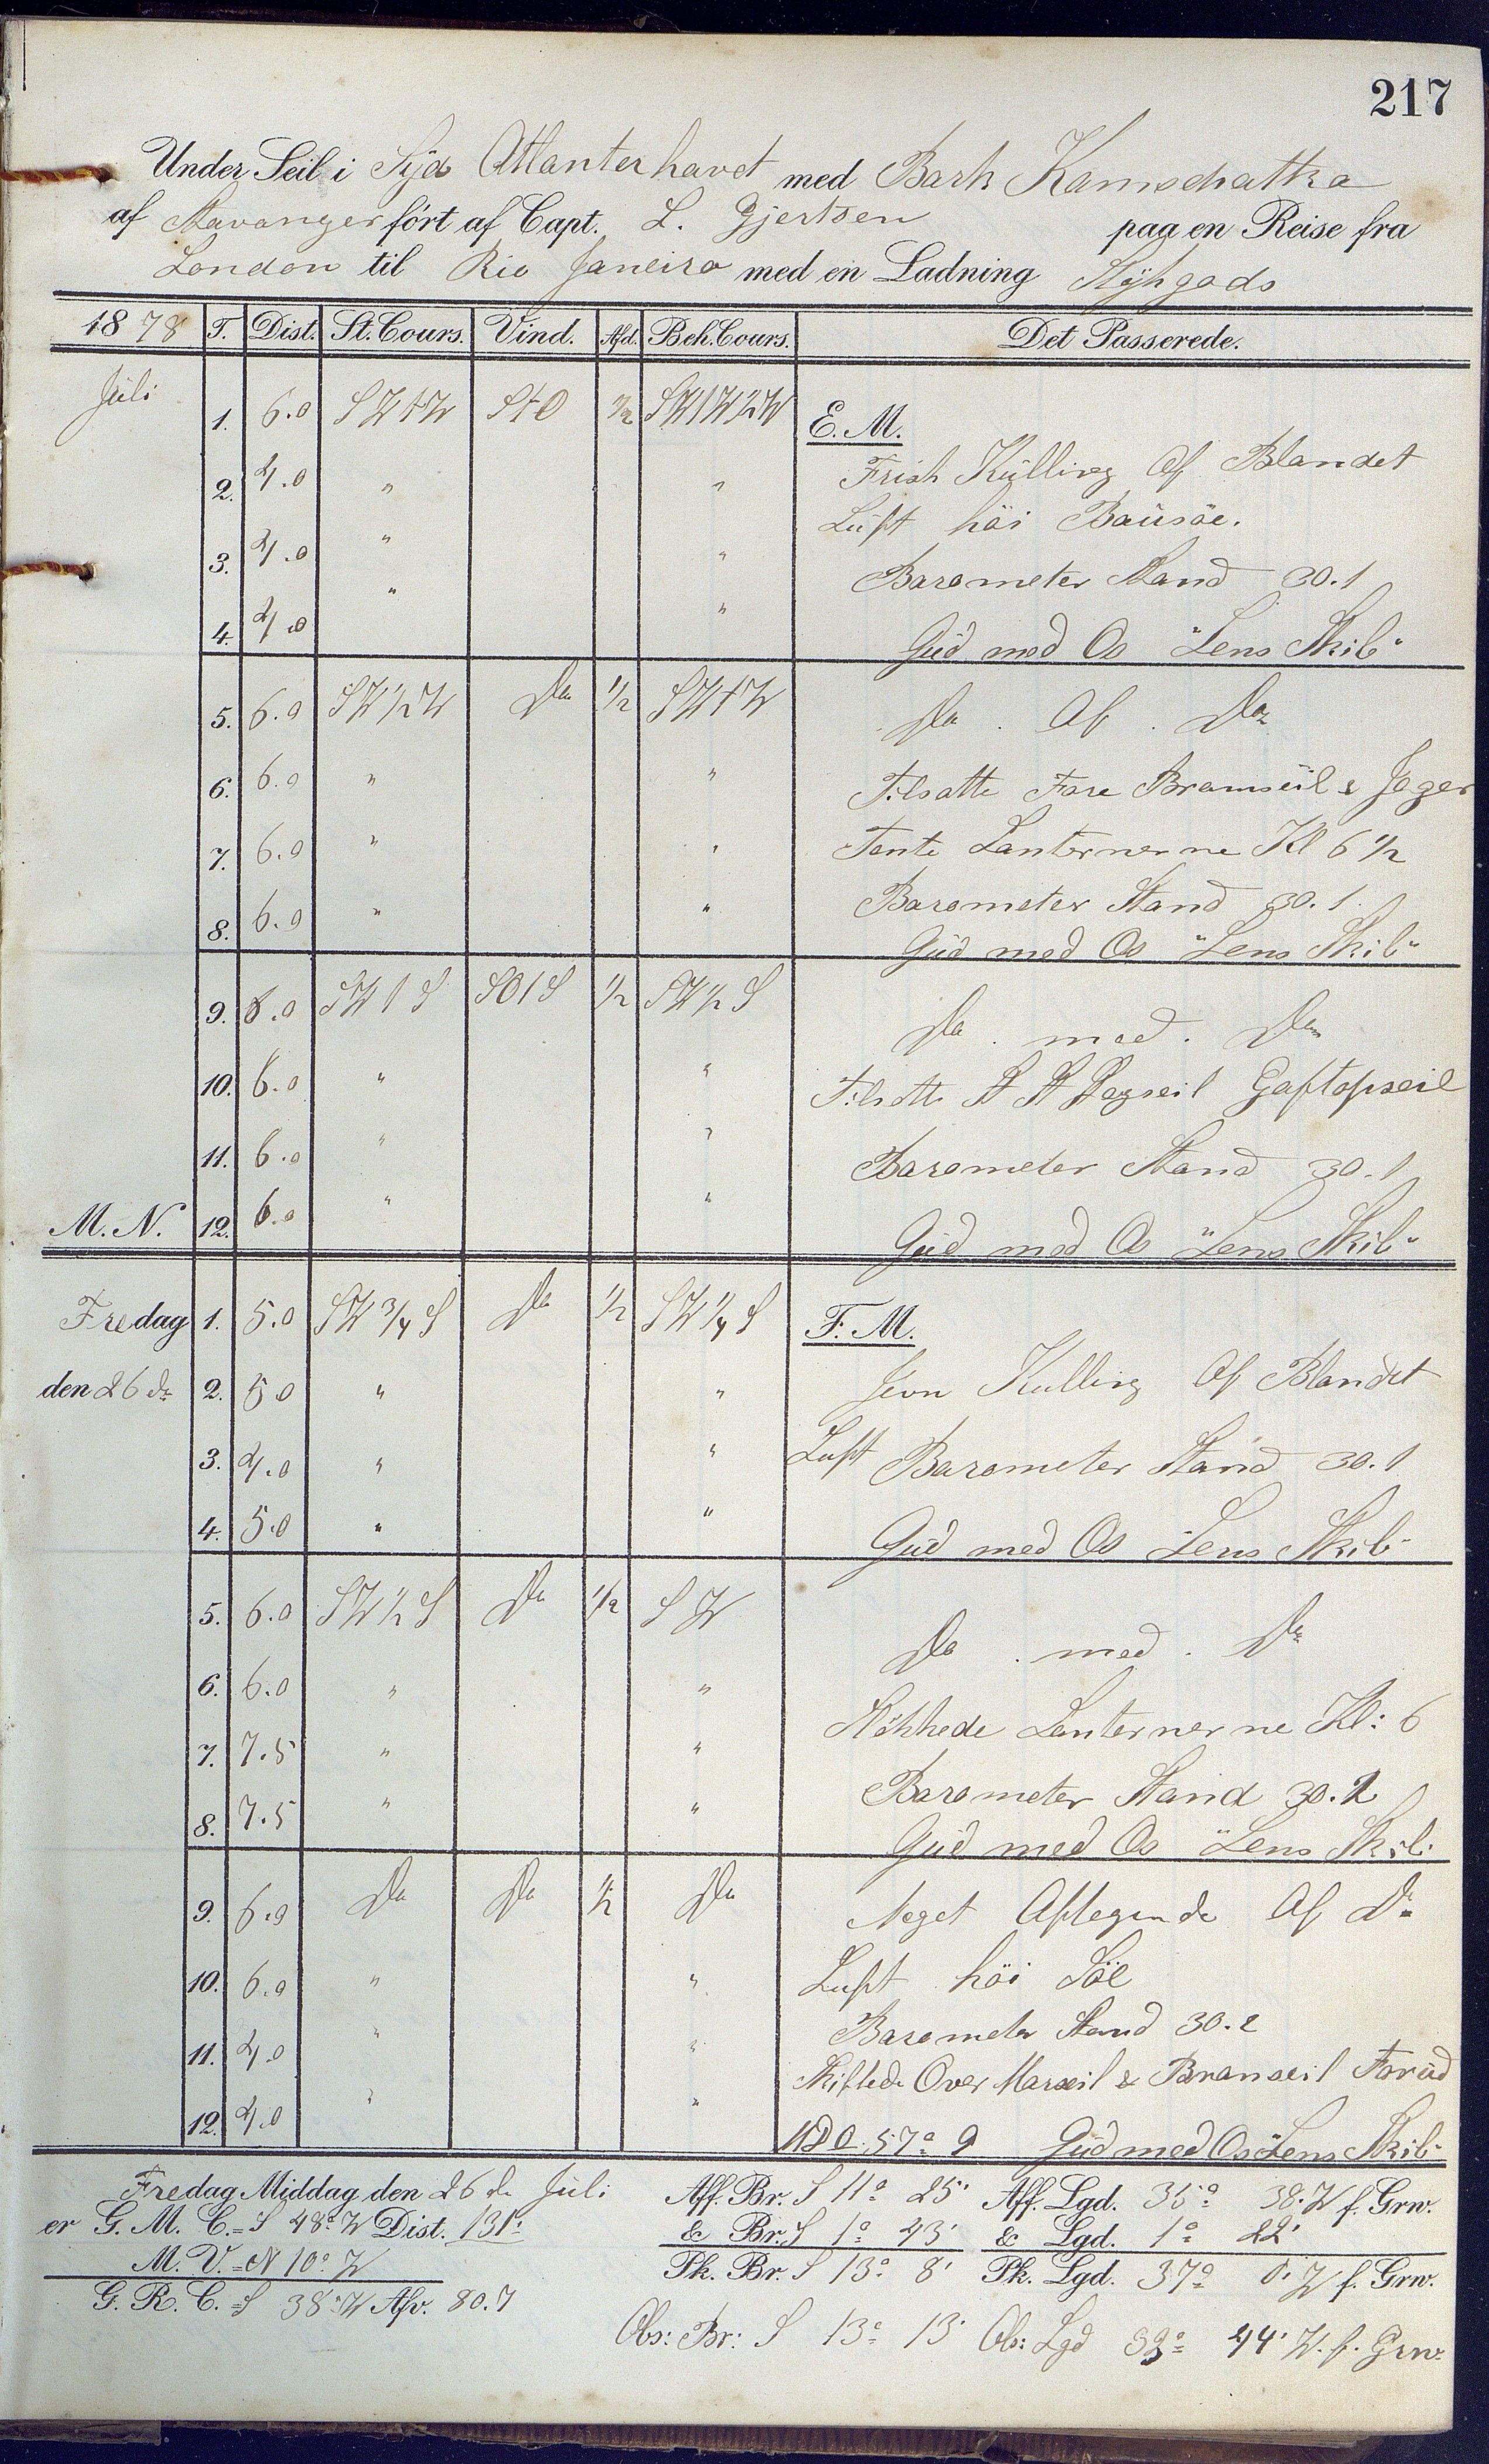 217
Under Seil i Syd Atlanterhavet med Bark Kamschatka
af Stavanger fört af Capt. L. Gjertsen paa en Reise fra
London til Rio Janeiro med en Ladning Stykgods
1878 T. Dist. St. Cours. Vind. Afd. Beh. Cours. Det Passerede.
Juli 1. 6.0 SWtW StO 1/2 SWtW1/2W E. M.
2. 4.0 " " Frisk Kulling Og Blandet
Luft höi Bausöe.
3. 4.0 " " Barometer Stand 30.1
4. 4.0 " " Gud med Os "Lens Skib"
5. 6.0 SW1/2W Do 1/2 SWtW Do . Og . Do
6. 6.0 " " Tilsatte Fore Bramseil & Jager
7. 6.0 " " Tente Lanternerne Kl 6 1/2
8. 6.0 " " Barometer Stand 30.1
Gud med Os "Lens Skib"
9. 6.0 SWtS SOtS 1/2 SW1/2S Do . med . Do
10. 6.0 " " Tilsatte St St Stagseil Gaftopseil
11. 6.0 " " Barometer Stand 30.1
M. N. 12. 6.0 " " Gud med Os "Lens Skib"
Fredag 1. 5.0 SW3/4S Do 1/2 SW1/4S F. M.
den 26 do 2. 5.0 " " Jevn Kulling Og Blandet
3. 4.0 " " Luft Barometer Stand 30.1
4. 5.0 " " Gud med Os Lens Skib"
5. 6.0 SW1/2S Do 1/2 SW Do . med . Do
6. 6.0 " " Slökkede Lanternerne Kl: 6
7. 7.5 " " Barometer Stand 30.2
8. 7.5 " " Gud med Os "Lens Skib"
9. 6.0 Do Do 1/2 Do Noget Aftagende Og Do
10. 6.0 " " Luft höi Söe
11. 4.0 " " Barometer Stand 30.2
Skiftede Over Marsseil & Bramseil Forud
12. 4.0 " " 57° 9 Gud med Os "Lens Skib"
Fredag Middag den 26 do Juli Aff. Br. S 11° 25' Aff. Lgd. 35° 38' W f. Grw.
er G. M. C. = S 48° W Dist. 131' & Br. S 1° 43' & Lgd. 1° 22'
M. V. = N 10° W Pk. Br. S 13° 8' Pk. Lgd. 37° 0' W f. Grw.
G. R. C. = S 38° W Afv. 80.7
Obs: Br: S 13° 13' Obs: Lgd 44' W. f. Grw.